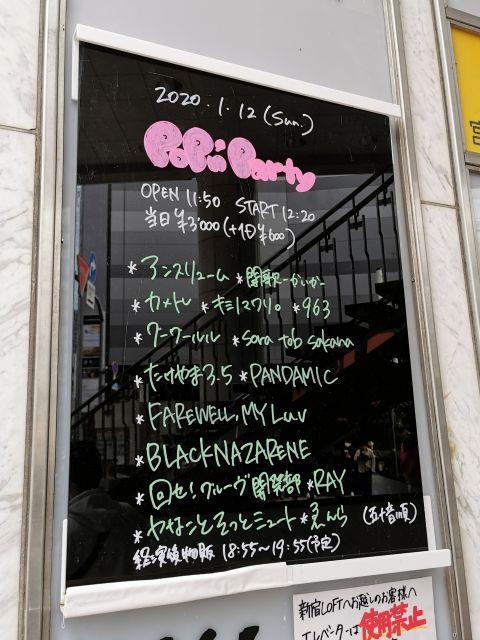 2020.1.12(Sun.)
PoPin Party
OPEN 11:50 START 12:20
当日¥3,000(+1D¥600)
*アンスリューム *開歌-かいか-
*カメトレ *キミイロプロジェクト *963
*クマリ *sora tob sakana
*たけやま3.5 *PANDAMIC
*FAREWELL, MY L.u.v
*BLACKNAZARENE
*回せ!グルーヴ開発部 *RAY
*ヤなことそっとミュート *えんら (五十音順)
終演後物販 18:55〜19:55(予定)
新宿LOFTへお越しのお客様へ
エレベーターは使用禁止